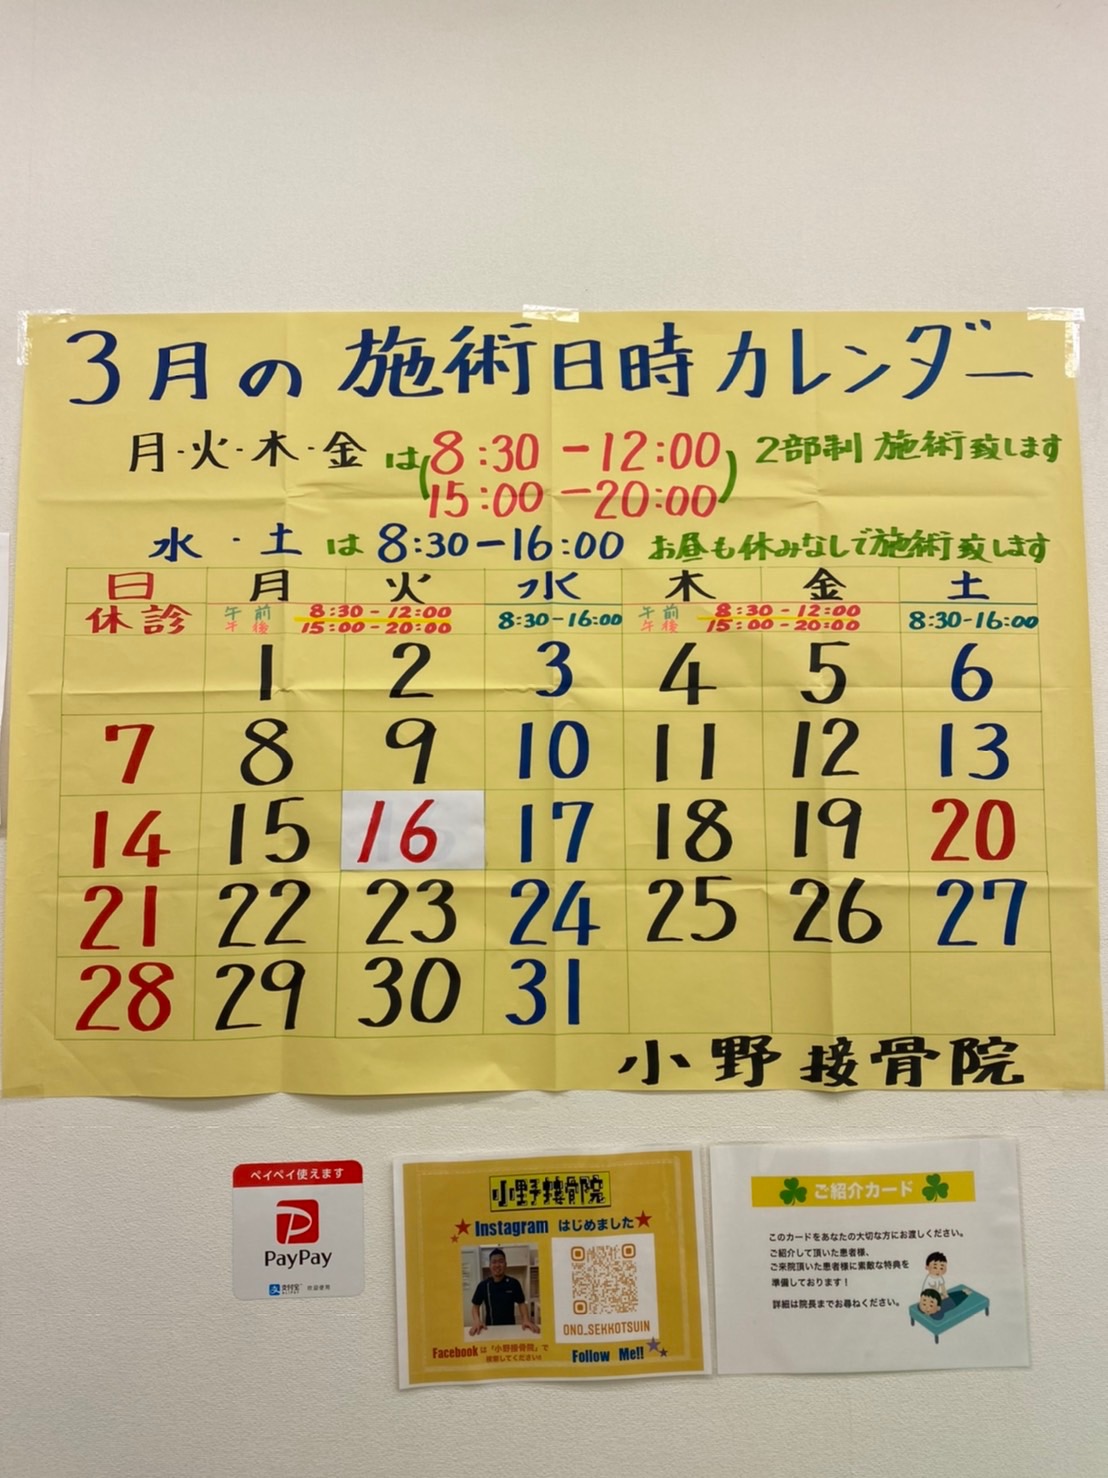 3月の施術日時カレンダー
月・火・木・金は(8:30-12:00
15:00-20:00)2部制 施術致します
水・土は8:30-16:00 お昼も休みなしで施術致します
日 月 火 水 木 金 土
休診 午前 8:30-12:00 8:30-16:00 午前 8:30-12:00 8:30-16:00
午後 15:00-20:00 午後 15:00-20:00
1 2 3 4 5 6
7 8 9 10 11 12 13
14 15 16 17 18 19 20
21 22 23 24 25 26 27
28 29 30 31
小野接骨院
ペイペイ使えます
PayPay
小野接骨院
Instagram はじめました
ONO_SEKKOTSUIN
Facebookは「小野接骨院」で
検索してください!
Follow Me!!
ご紹介カード
このカードをあなたの大切な方にお渡しください。
ご紹介して頂いた患者様、
ご来院頂いた患者様に素敵な特典を
準備しております!
詳細は院長までお尋ねください。